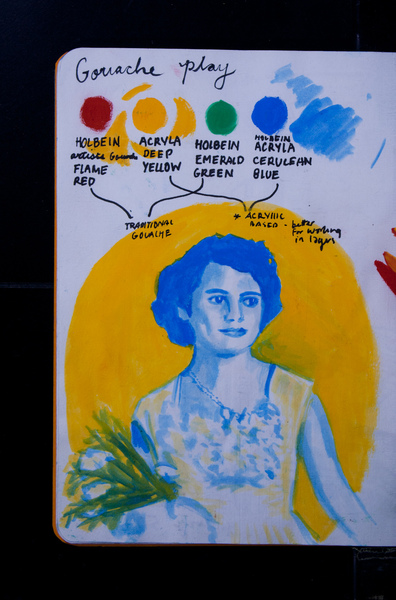 Gouache play
HOLBEIN
artists Gouache
FLAME
RED
ACRYLA
DEEP
YELLOW
HOLBEIN
EMERALD
GREEN
HOLBEIN
ACRYLA
CERULEAN
BLUE
TRADITIONAL
GOUACHE
* ACRYLIC
BASED - better
for working
in layers